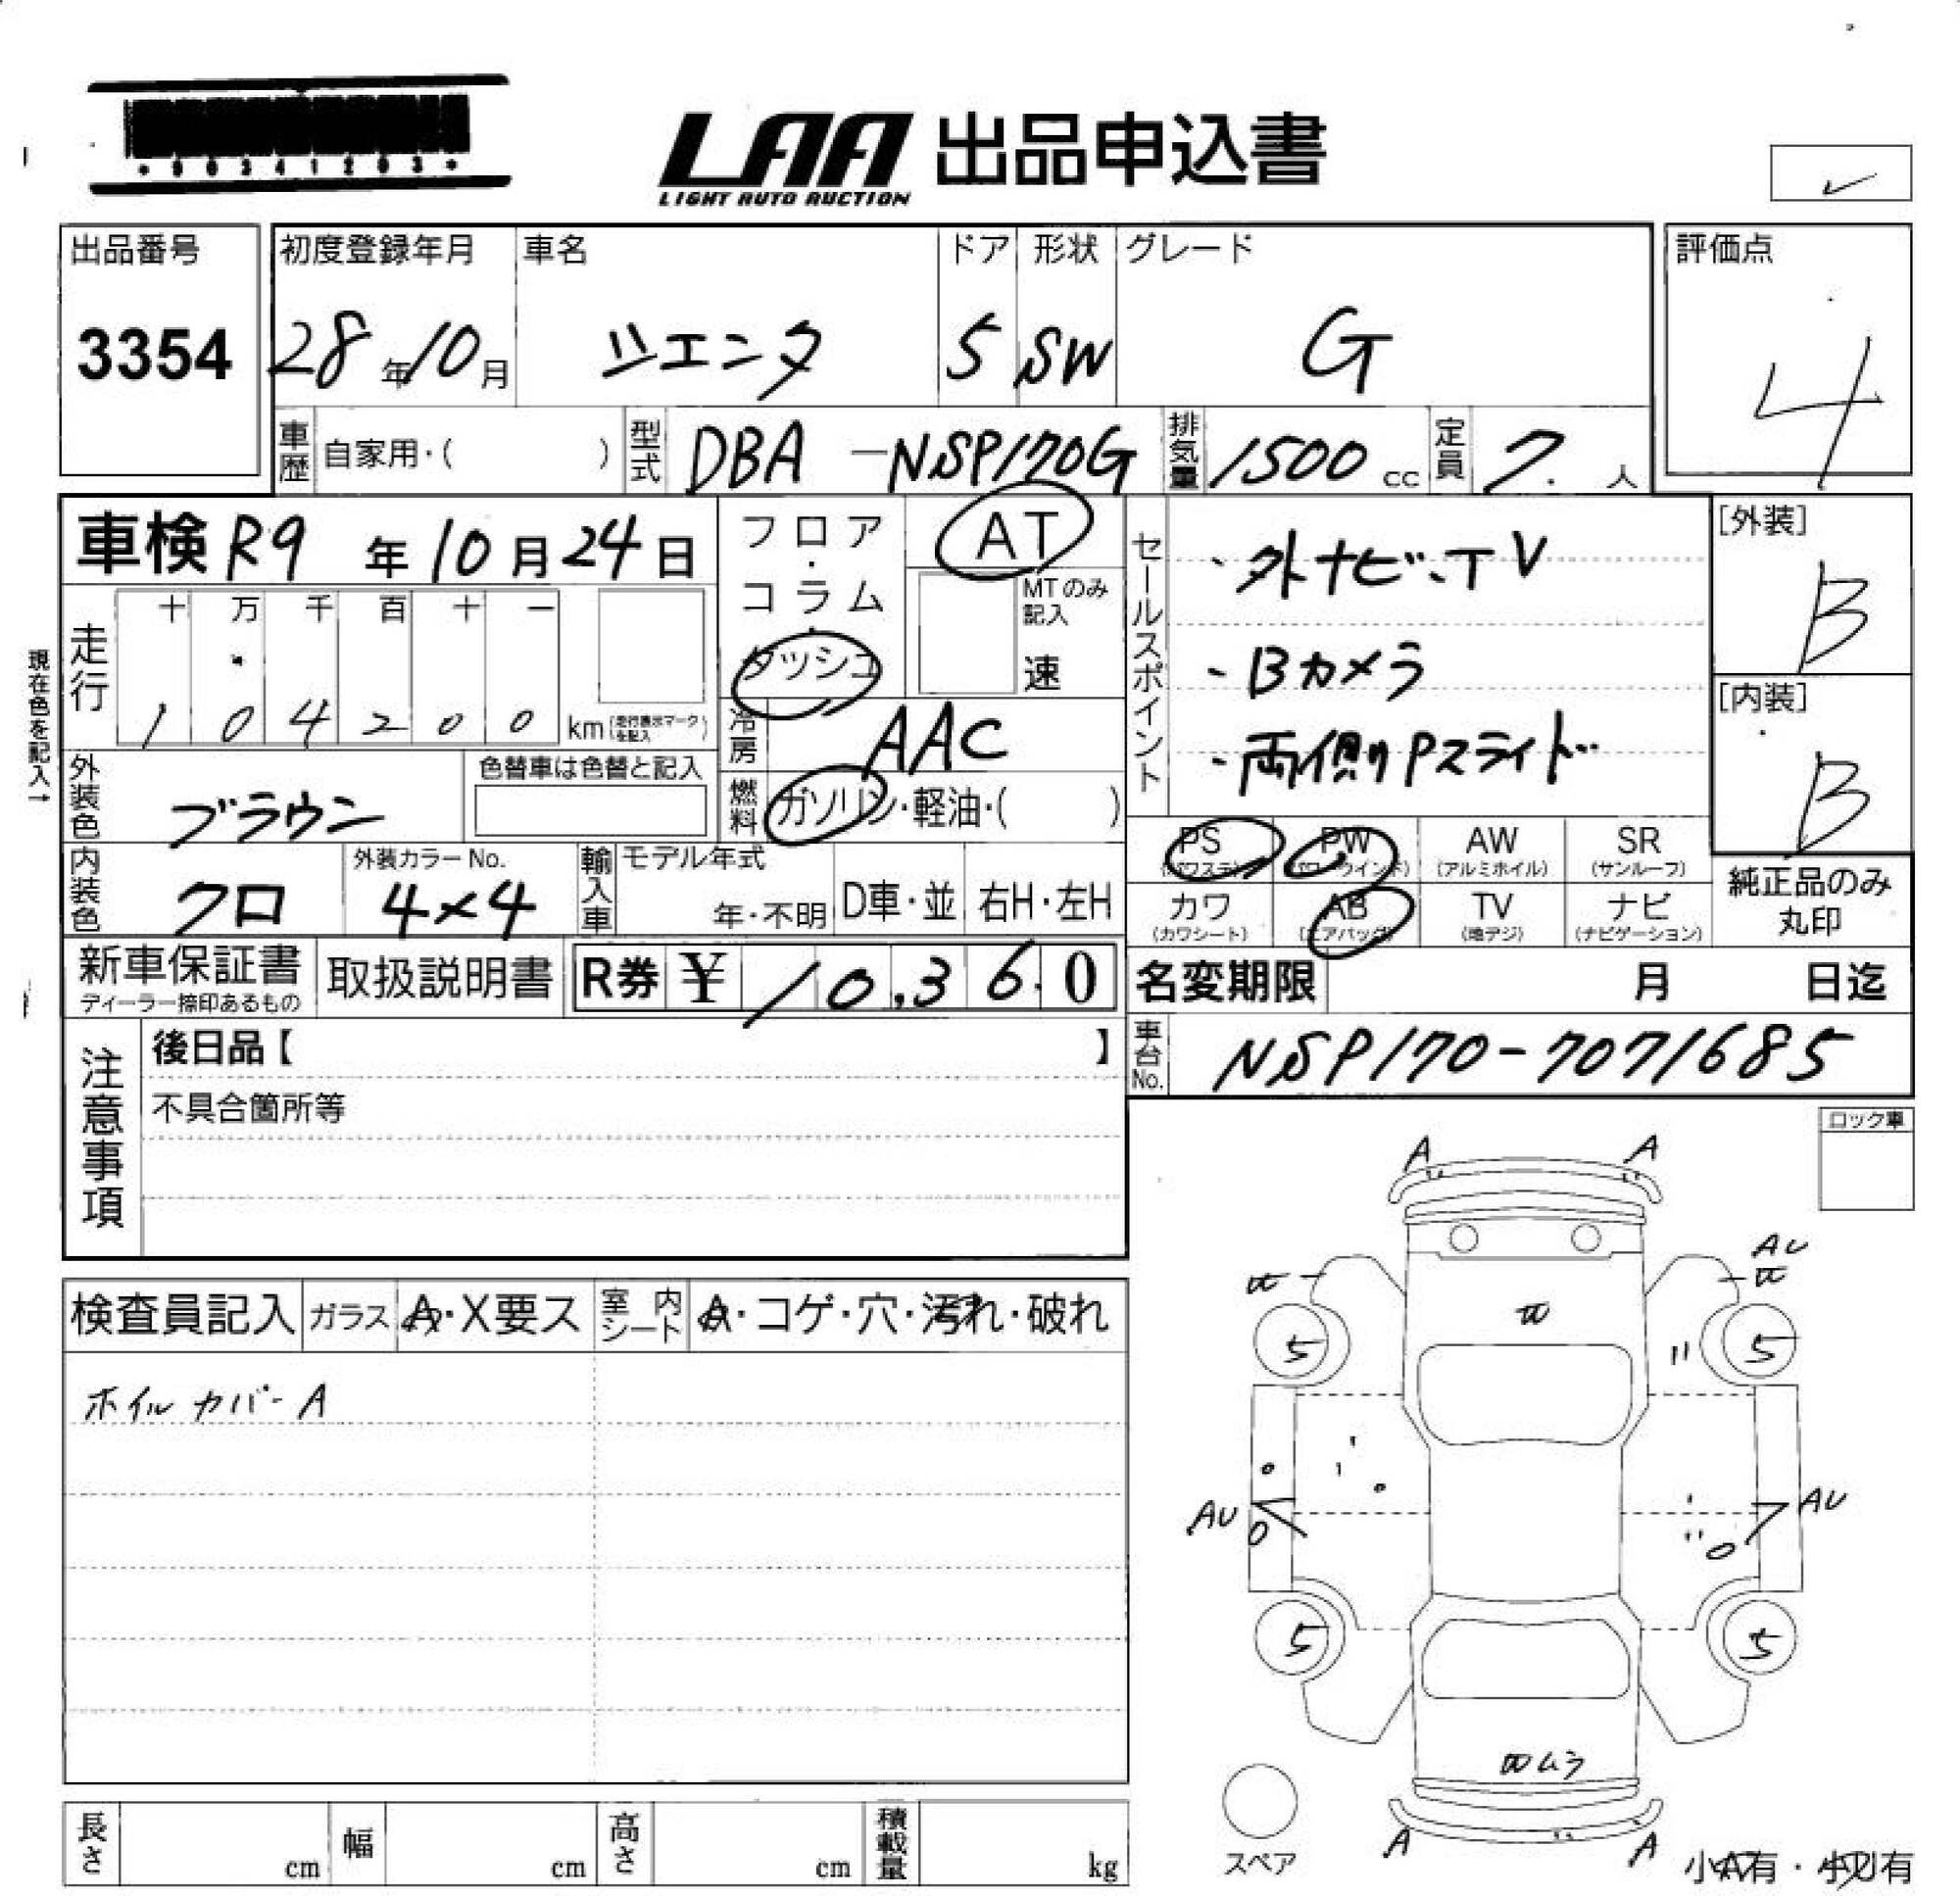 *00341203*
LAA 出品申込書
LIGHT AUTO AUCTION
出品番号 初度登録年月 車名 ドア 形状 グレード 評価点
3354 28年10月 シエンタ 5 SW G 4
車歴 自家用・( ) 型式 DBA -NSP170G 排気量 1500 cc 定員 7. 人
車検 R9 年 10 月 24 日 フロア・コラム・ダッシュ AT
MTのみ記入 速
現在色を記入→
走行 十 万 千 百 十 一
1 0 4 2 0 0 km (走行表示マークを記入)
冷房 AAC
外装色 ブラウン 色替車は色替と記入
燃料 ガソリン・軽油・( )
内装色 クロ 外装カラーNo. 4×4 輸入車 モデル年式 年・不明 D車・並 右H・左H
セールスポイント
・外ナビ、TV
・Bカメラ
・両側Pスライド
[外装] B
[内装] B
PS (パワステ) PW (パワーウインド) AW (アルミホイル) SR (サンルーフ)
カワ (カワシート) AB (エアバッグ) TV (地デジ) ナビ (ナビゲーション)
純正品のみ丸印
新車保証書 ディーラー捺印あるもの 取扱説明書 R券 ¥ 10,360
名変期限 月 日迄
車台No. NSP170-7071685
注意事項
後日品【 】
不具合箇所等
ロック車
検査員記入 ガラス A・X要ス 室内シート A・コゲ・穴・汚れ・破れ
ホイルカバーA
A A
AU
5 5
AU AU
5 5
ムラ
A A
スペア
小A有・小U有
長さ cm 幅 cm 高さ cm 積載量 kg